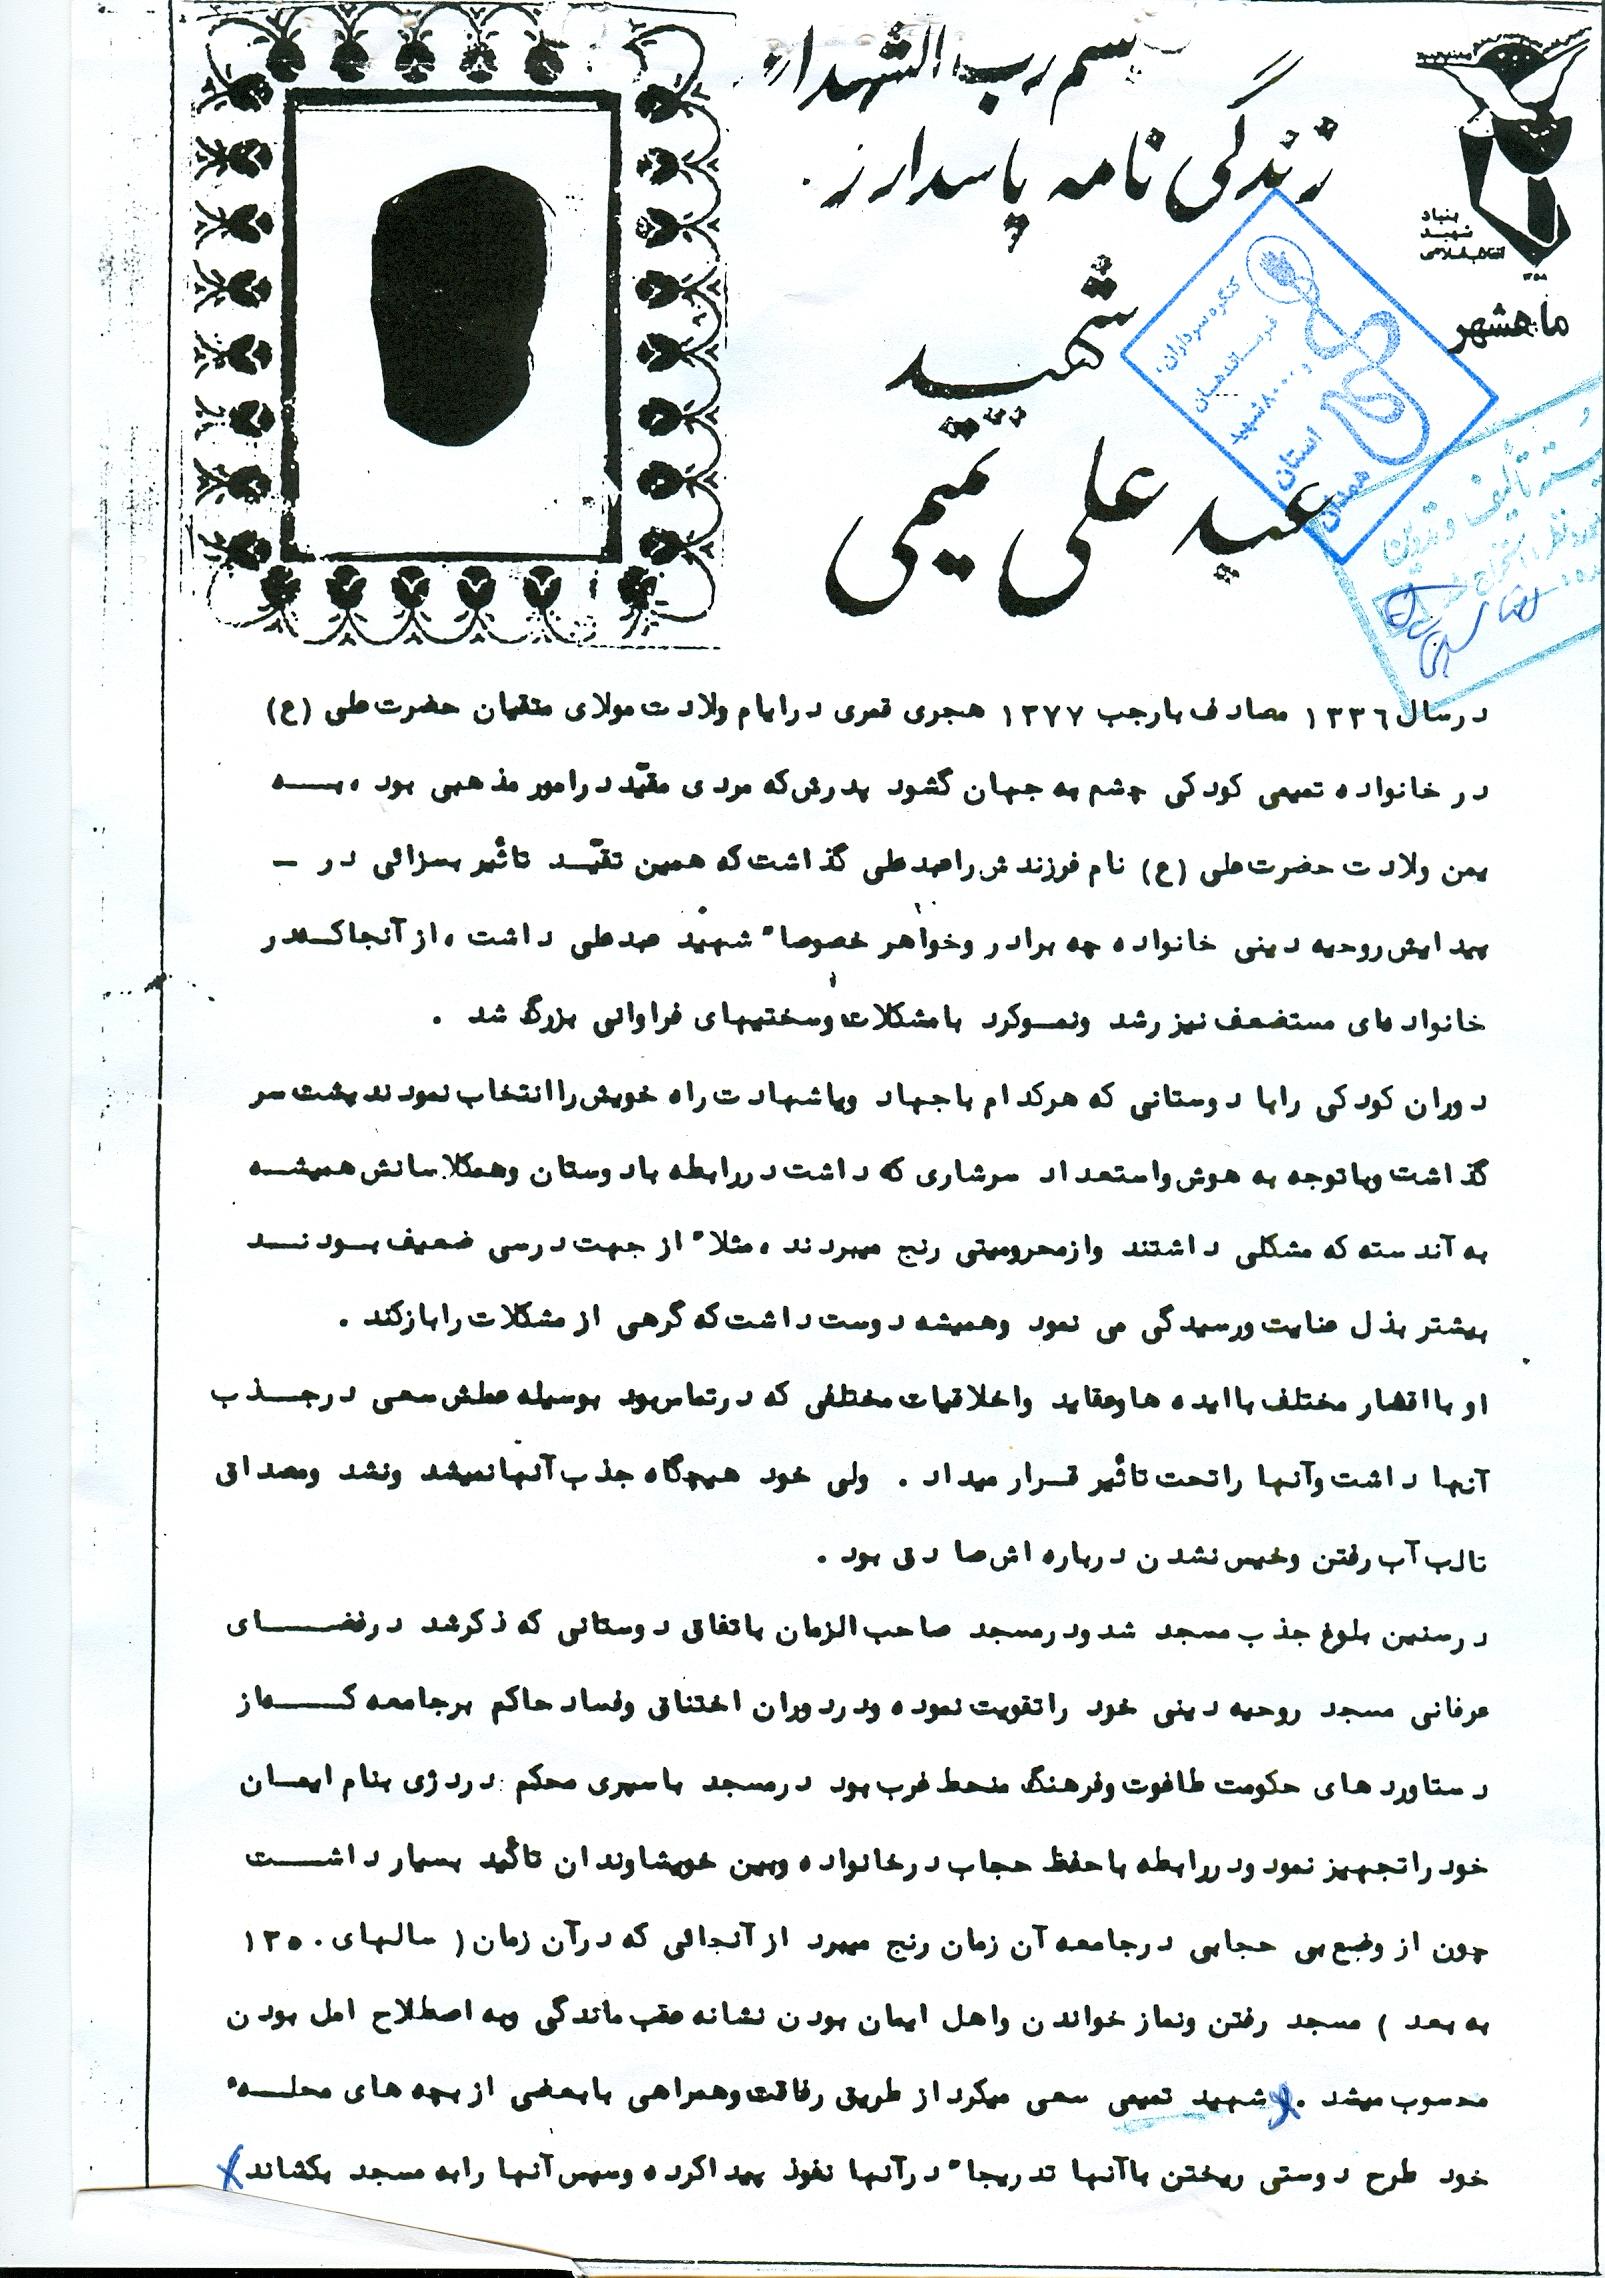 بسم رب الشهداء
زندگی نامه پاسدار
شهید
عبد علی تمیمی
بنیاد
شهید
انقلاب اسلامی
۱۳۵۸
ماهشهر
کنگره سرداران،
فرماندهان
و ۸۰۰۰ شهید
استان
همدان
تألیف و تدوین
در سال ۱۳۳۶ مصادف با رجب ۱۳۷۷ هجری قمری در ایام ولادت مولای متقیان حضرت علی (ع)
در خانواده تمیمی کودکی چشم به جهان گشود پدرش که مردی مقیّد در امور مذهبی بود، به
یمن ولادت حضرت علی (ع) نام فرزندش را عبدعلی گذاشت که همین تقیّد تأثیر بسزائی در -
پیدایش روحیه دینی خانواده چه برادر و خواهر خصوصاً شهید عبدعلی داشت، از آنجا که در
خانواده‌ای مستضعف نیز رشد و نمو کرد با مشکلات و سختیهای فراوانی بزرگ شد .
دوران کودکی را با دوستانی که هر کدام با جهاد و یا شهادت راه خویش را انتخاب نمودند پشت سر
گذاشت و با توجه به هوش و استعداد سرشاری که داشت در رابطه با دوستان و همکلاسانش همیشه
به آندسته که مشکلی داشتند و از محرومیتی رنج میبردند، مثلاً از جهت درسی ضعیف بودند
بیشتر بذل عنایت و رسیدگی می نمود و همیشه دوست داشت که گرهی از مشکلات را باز کند .
او با اقشار مختلف با ایده ها و عقاید و اخلاقیات مختلفی که در تماس بود بوسیله عملش سعی در جذب
آنها داشت و آنها را تحت تأثیر قرار میداد . ولی خود هیچگاه جذب آنها نمیشد و نشد و مصداق
تا لب آب رفتن و خیس نشدن درباره اش صادق بود .
در سنین بلوغ جذب مسجد شد و در مسجد صاحب الزمان باتفاق دوستانی که ذکر شد در فضای
عرفانی مسجد روحیه دینی خود را تقویت نموده و در دوران اختناق و فساد حاکم بر جامعه که از
دستاوردهای حکومت طاغوت و فرهنگ منحط غرب بود در مسجد با سپری محکم در دژی بنام ایمان
خود را تجهیز نمود و در رابطه با حفظ حجاب در خانواده و بین خویشاوندان تأکید بسیار داشت
چون از وضع بی حجابی در جامعه آن زمان رنج میبرد از آنجائی که در آن زمان ( سالهای ۱۳۵۰
به بعد ) مسجد رفتن و نماز خواندن و اهل ایمان بودن نشانه عقب ماندگی و به اصطلاح امل بودن
محسوب میشد . شهید تمیمی سعی میکرد از طریق رفاقت و همراهی با بعضی از بچه های محله
خود طرح دوستی ریختن با آنها تدریجاً در آنها نفوذ پیدا کرده و سپس آنها را به مسجد بکشاند